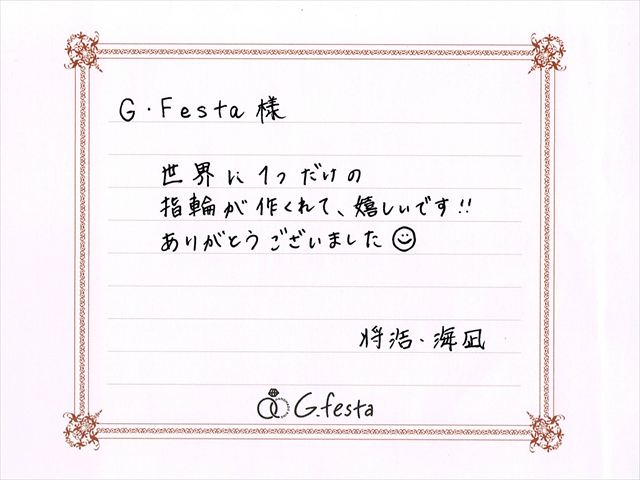 G・Festa 様
世界に1つだけの
指輪が作くれて、嬉しいです!!
ありがとうございました
将浩・海凪
G.festa